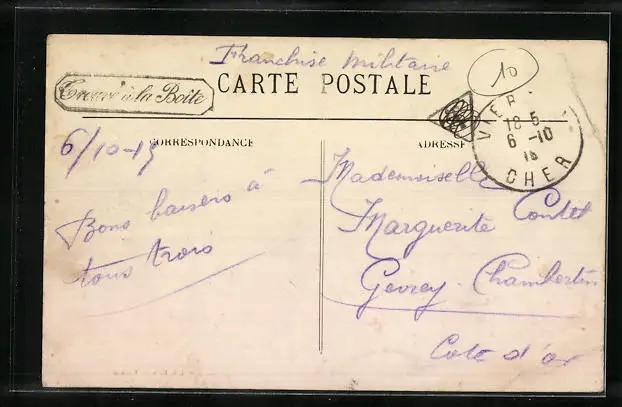 Franchise Militaire
10
CARTE POSTALE
Trouvé à la Boîte
VIER
18 5
6 -10
15
CHER
CORRESPONDANCE
ADRESSE
6/10-15
Mademoiselle
Marguerite Contet
Gevrey-Chambertin
Cote d'or
Bons baisers à
tous trois